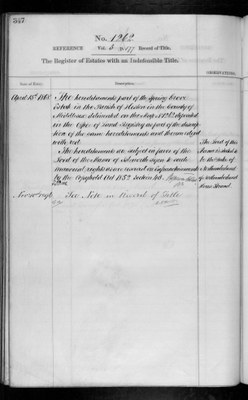 347
No. 1262
REFERENCE Vol. 3 Fo. 177 Record of Title.
The Register of Estates with an Indefeasible Title.
Date of Entry. Description. OBSERVATIONS.
April 15th 1868 The hereditaments part of the Spring Grove
Estate in the Parish of Heston in the County of
Middlesex delineated on the Map No. 1262 deposited
in the Office of Land Registry as part of the descrip
tion of the same hereditaments and thereon edged
with red.
The hereditaments are subject in favor of the The Lord of the
Lord of the Manor of Isleworth Syon to such Manor is stated
manorial rights as are reserved in Enfranchisements to be the Duke of
by the Copyhold Act 1852 Section 48. Northumberland
of Northumberland
House Strand.
See Note in Record of Title